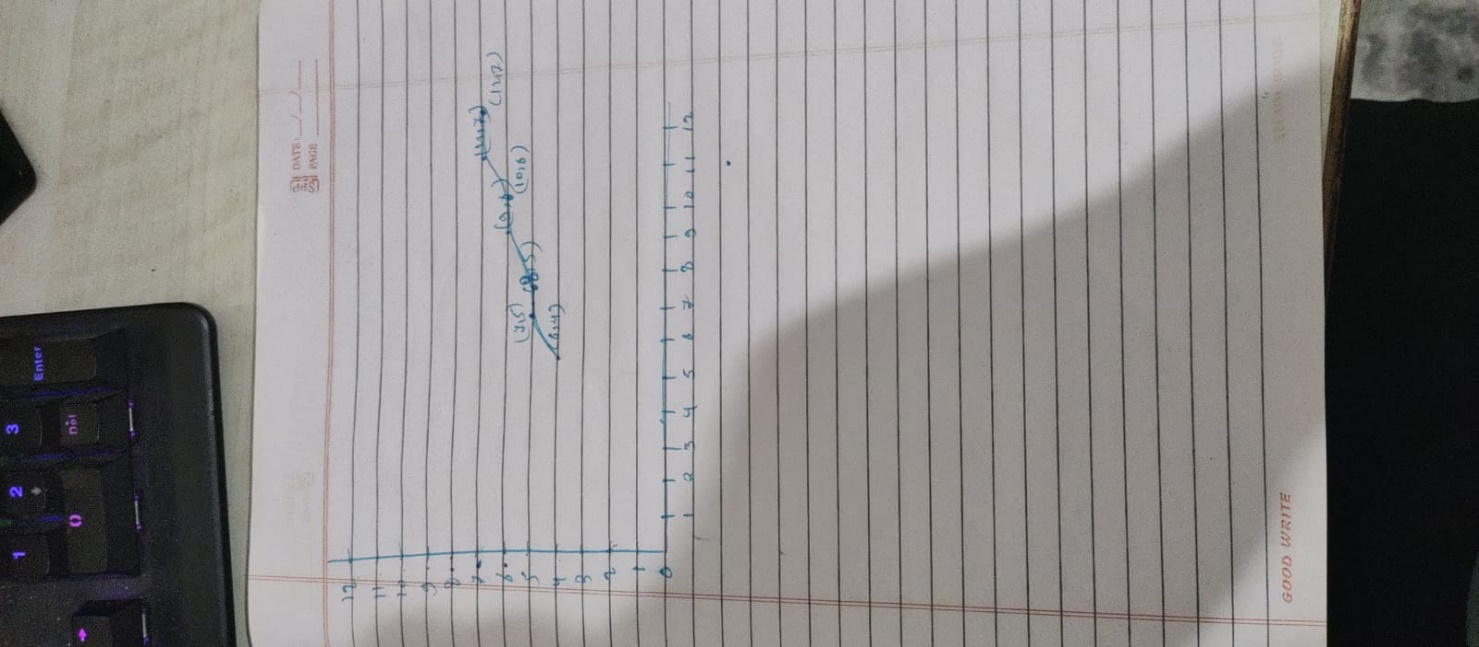 DATE: __/__/__
PAGE
12
11
10
9
8
7
6
5
4
3
2
1
0
1 2 3 4 5 6 7 8 9 10 11 12
(6,4)
(7,5)
(8,5)
(9,6)
(10,6)
(11,7)
(12,7)
GOOD WRITE
Enter
3
Del
2
0
1